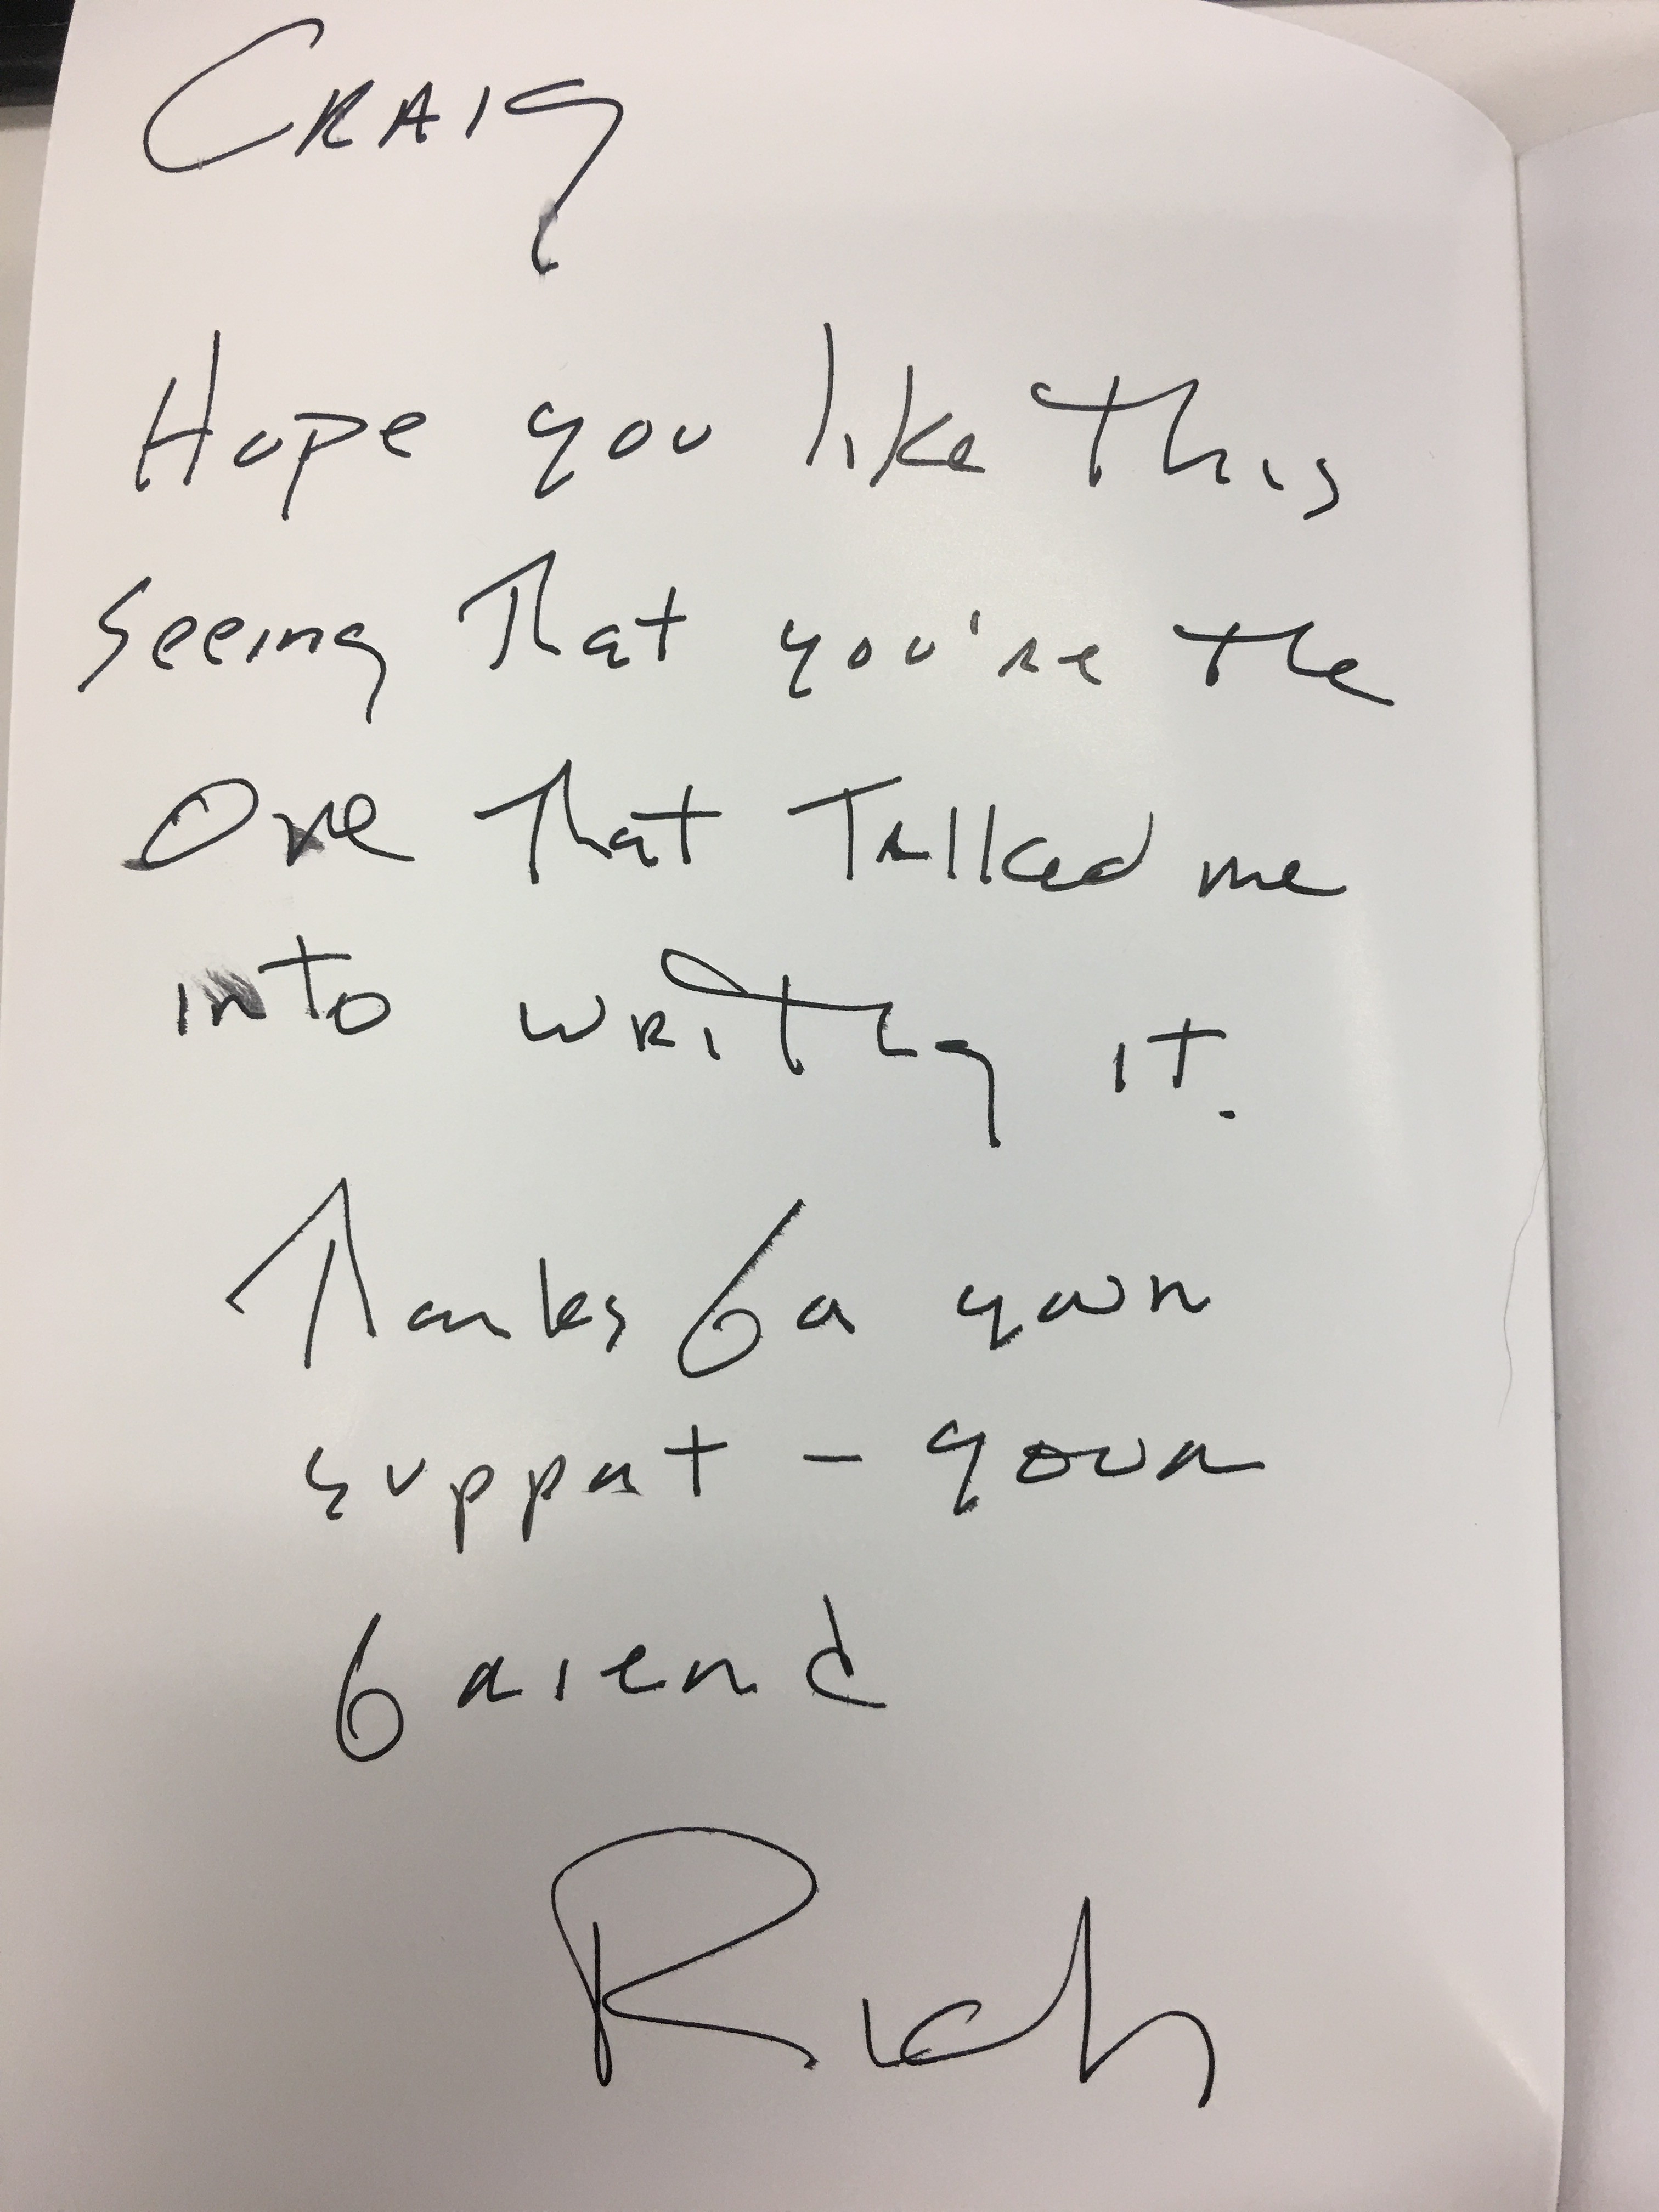 CRAIG
Hope you like This
seeing That you're the
One That Talked me
into writing it.
Thanks for your
support - your
friend
Rich